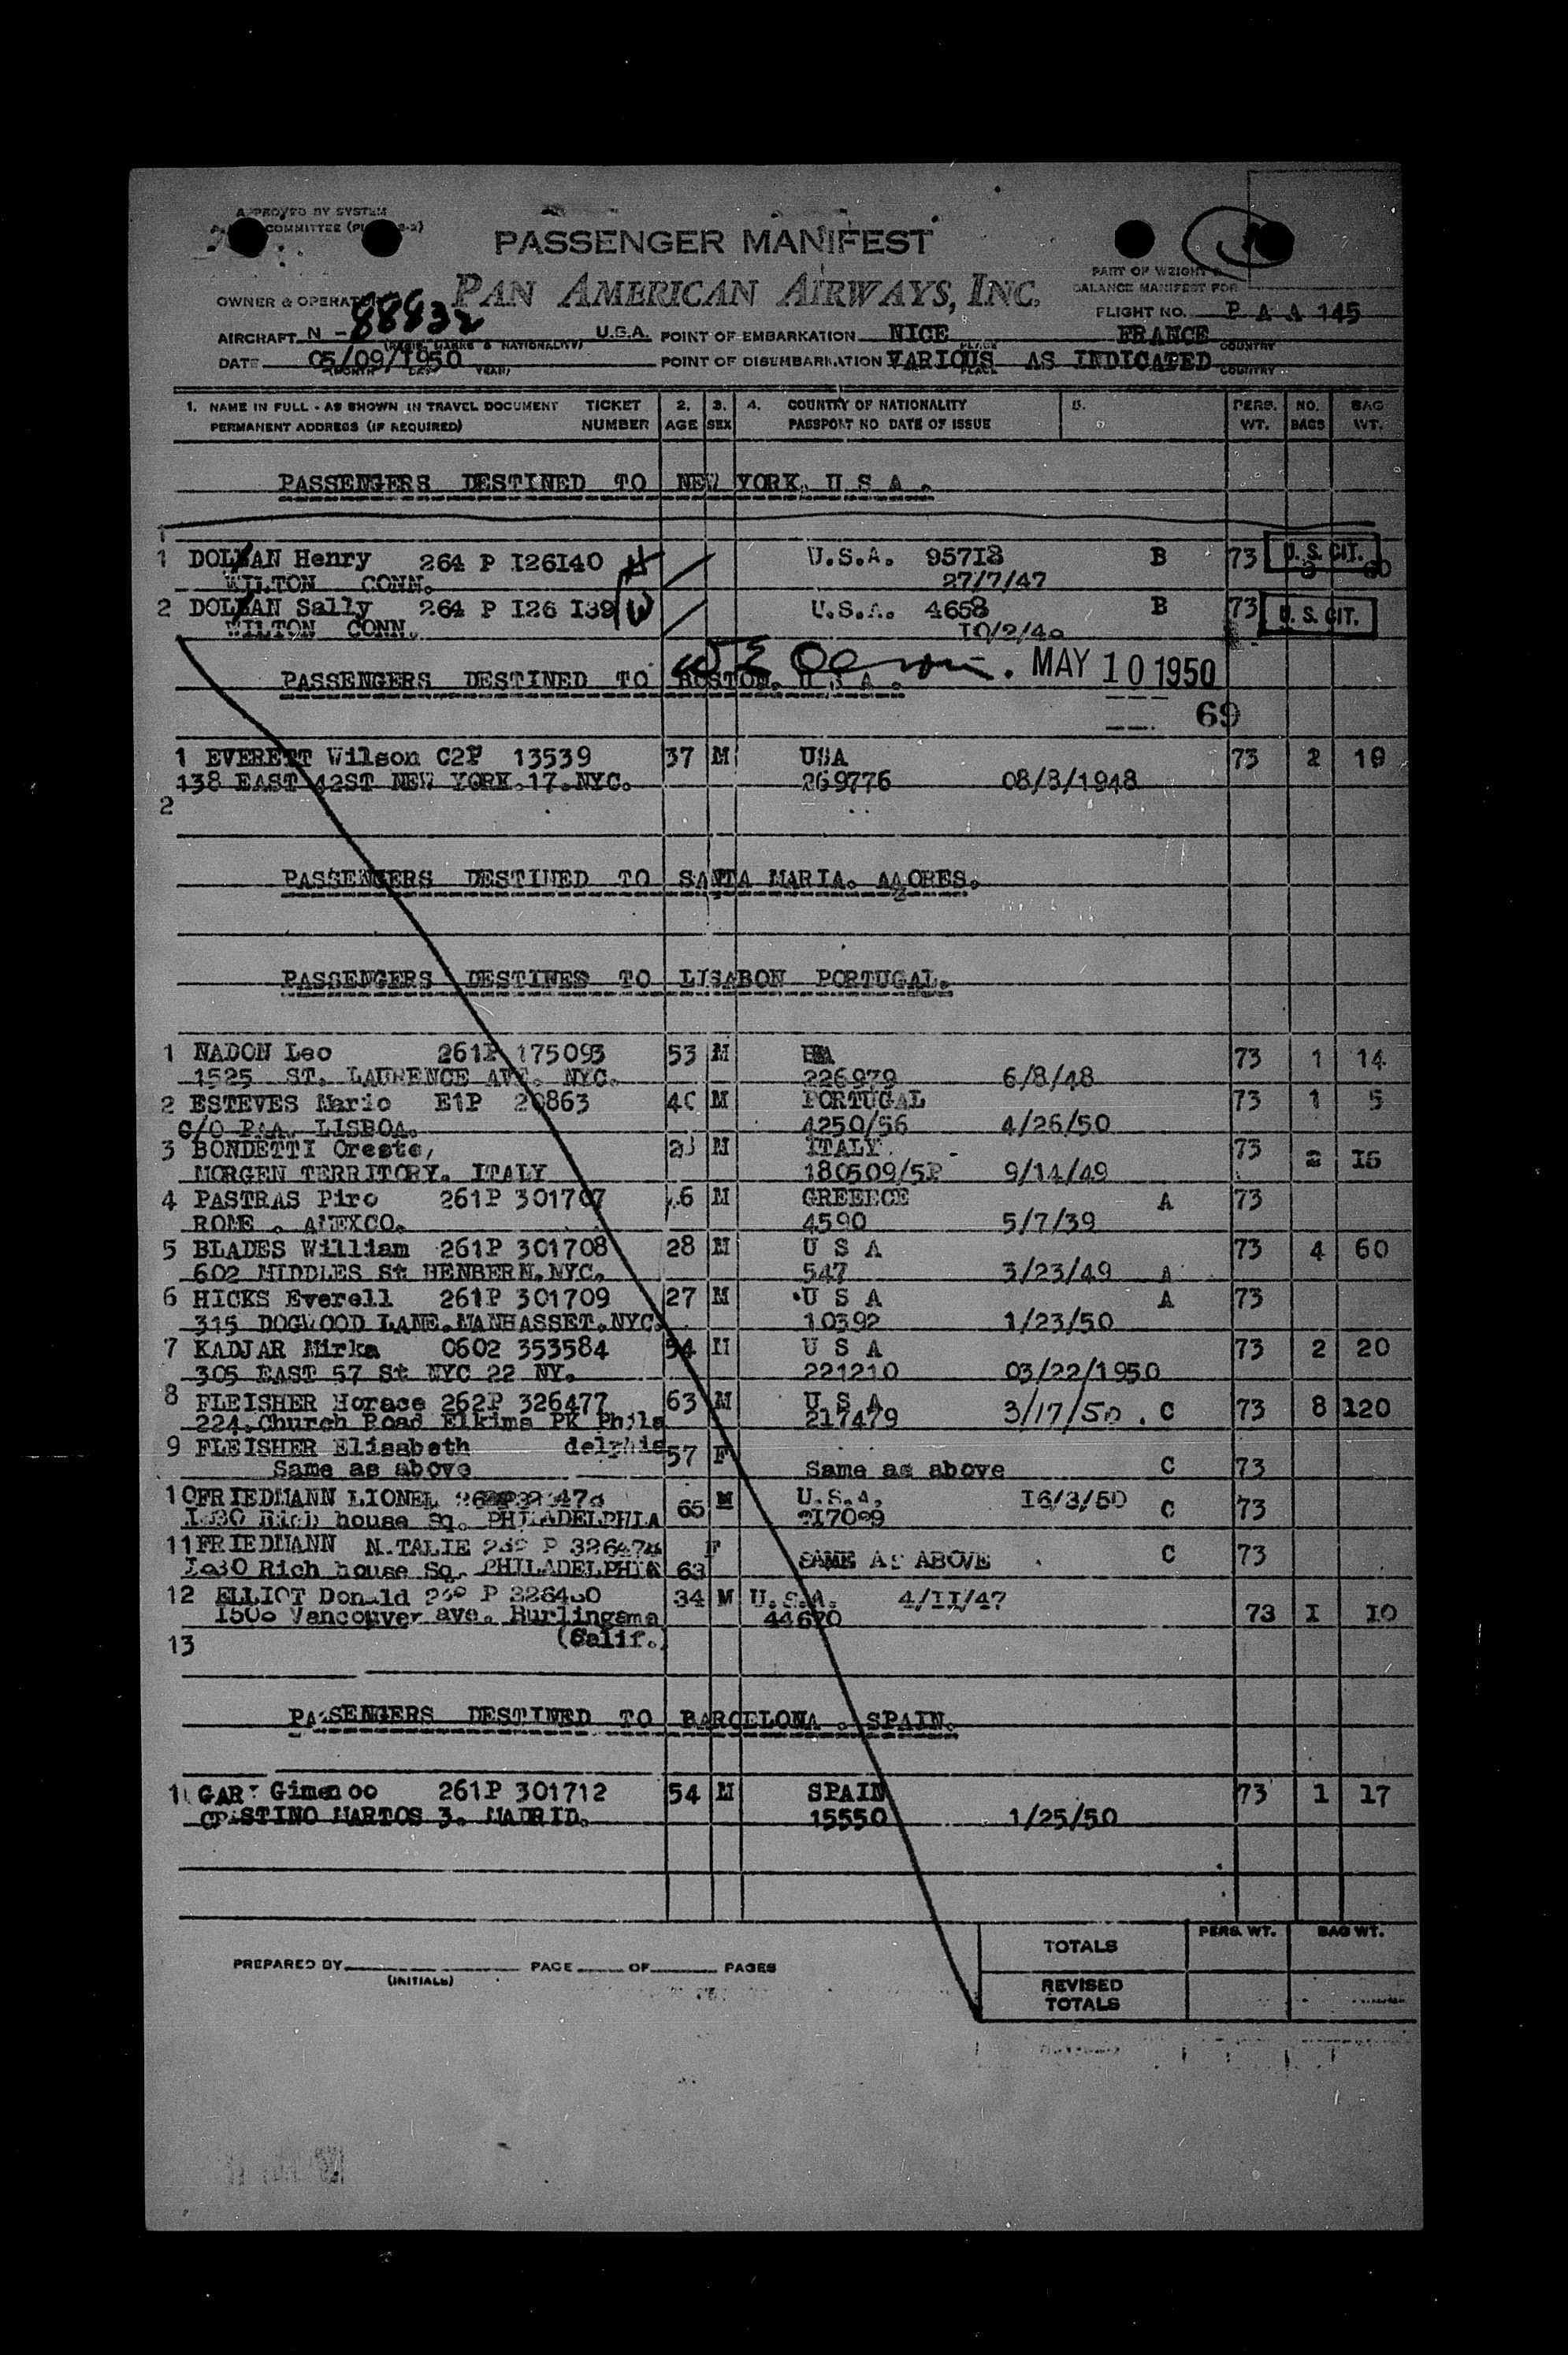 APPROVED BY SYSTEM
COMMITTEE
PASSENGER MANIFEST
PAN AMERICAN AIRWAYS, INC.
PART OF WEIGHT &
BALANCE MANIFEST FOR
OWNER & OPERATOR
FLIGHT NO. P A A 145
AIRCRAFT N - 88832 U.S.A. POINT OF EMBARKATION NICE FRANCE
(MARKS & NATIONALITY) PLACE COUNTRY
DATE 05/09/1950 POINT OF DISEMBARKATION VARIOUS AS INDICATED
(MONTH DAY YEAR) PLACE COUNTRY
1. NAME IN FULL - AS SHOWN IN TRAVEL DOCUMENT TICKET 2. 3. 4. COUNTRY OF NATIONALITY 5. PERS. NO. BAG
PERMANENT ADDRESS (IF REQUIRED) NUMBER AGE SEX PASSPORT NO DATE OF ISSUE WT. BAGS WT.
PASSENGERS DESTINED TO NEW YORK. U S A .
1
1 Henry 264 P I26I40 U.S.A. 957I8 B 73 U. S. CIT.
WILTON CONN. 27/7/47
2 Sally 264 P I26 I39 U.S.A. 4658 B 73 U. S. CIT.
WILTON CONN. I0/2/49
MAY 10 1950
PASSENGERS DESTINED TO BOSTON. U S A .
69
1 EVERETT Wilson C2P 13539 37 M USA 73 2 19
138 EAST 42ST NEW YORK.17.NYC. 269776 08/8/1948
2
PASSENGERS DESTINED TO SANTA MARIA. AZORES.
PASSENGERS DESTINES TO LISABON PORTUGAL.
1 NADON Leo 261P 175093 53 M 73 1 14
1525 ST. LAURENCE AVE. NYC. 226979 6/8/48
2 ESTEVES Mario E1P 20863 40 M PORTUGAL 73 1 5
C/O PAA. LISBOA. 4250/56 4/26/50
3 BONDETTI Oreste, M ITALY 73 2 I5
MORGEN TERRITORY. ITALY 180509/5P 9/14/49
4 PASTRAS Piro 261P 301707 M GREEECE A 73
ROME . AMEXCO. 4590 5/7/39
5 BLADES William 261P 301708 28 M U S A 73 4 60
602 MIDDLES St HENBERN.NYC. 547 3/23/49 A
6 HICKS Everell 261P 301709 27 M U S A A 73
315 DOGWOOD LANE.MANHASSET.NYC. 10392 1/23/50
7 KADJAR Mirka 0602 353584 54 M U S A 73 2 20
305 EAST 57 St NYC 22 NY. 221210 03/22/1950
8 FLEISHER Horace 262P 326477 63 M U S A 3/17/50 . C 73 8 120
224.Church Road Elkims PK Phila 217479
9 FLEISHER Elisabeth delphia 57 F
Same as above Same as above C 73
10 FRIEDMANN LIONEL 65 M U.S.A. I6/3/50 C 73
Rich house Sq. PHILADELPHIA
11 FRIEDMANN F SAME AS ABOVE C 73
Rich house Sq. PHILADELPHIA 63
12 ELLIOT Donald 34 M U.S.A. 4/II/47
Vancouver ave. Burlingama 44620 73 I I0
(Calif.)
13
PASSENGERS DESTINED TO BARCELONA . SPAIN.
1 Gimenoo 261P 301712 54 M SPAIN 73 1 17
MARTOS 3. MADRID. 15550 1/25/50
PERS. WT. BAG WT.
TOTALS
PREPARED BY (INITIALS) PAGE OF PAGES
REVISED
TOTALS